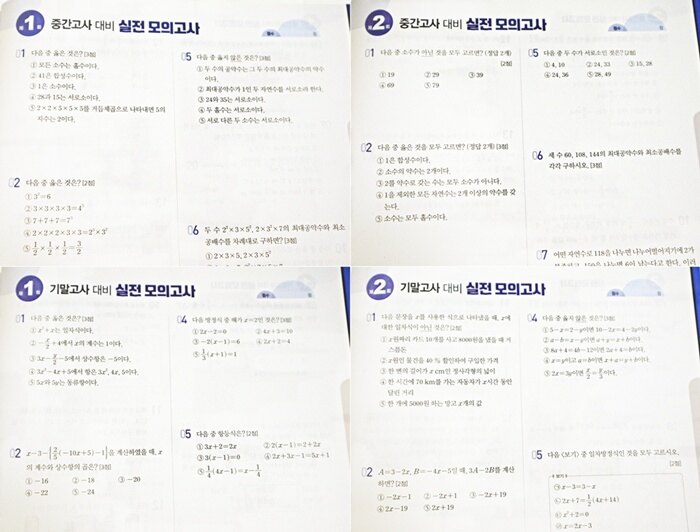 제1회 중간고사 대비 실전 모의고사
01 다음 중 옳은 것은? [3점]
① 모든 소수는 홀수이다.
② 41은 합성수이다.
③ 1은 소수이다.
④ 28과 15는 서로소이다.
⑤ 2×2×5×5×5를 거듭제곱으로 나타내면 5의
지수는 2이다.
02 다음 중 옳은 것은? [2점]
② 3×3×3×3=4³
④ 2×2×2×3×3=2³×3²
⑤ 1/2×1/2×1/2=3/2
05 다음 중 옳지 않은 것은? [3점]
① 두 수의 공약수는 그 두 수의 최대공약수의 약수
이다.
② 최대공약수가 1인 두 자연수를 서로소라 한다.
③ 24와 35는 서로소이다.
④ 두 홀수는 서로소이다.
⑤ 서로 다른 두 소수는 서로소이다.
06 두 수 2²×3×5², 2×3²×7의 최대공약수와 최소
공배수를 차례대로 구하면? [3점]
제2회 중간고사 대비 실전 모의고사
01 다음 중 소수가 아닌 것을 모두 고르면? (정답 2개)
[2점]
① 19 ② 29 ③ 39
④ 69 ⑤ 79
02 다음 중 옳은 것을 모두 고르면? (정답 2개) [3점]
① 1은 합성수이다.
② 소수의 약수는 2개이다.
③ 2를 약수로 갖는 수는 모두 소수가 아니다.
④ 1을 제외한 모든 자연수는 2개 이상의 약수를 갖
는다.
⑤ 소수는 모두 홀수이다.
05 다음 중 두 수가 서로소인 것은? [2점]
① 4, 10 ② 24, 33 ③ 15, 28
④ 24, 36 ⑤ 28, 49
06 세 수 60, 108, 144의 최대공약수와 최소공배수를
각각 구하시오. [3점]
07 어떤 자연수로 118을 나누면 나누어떨어지기에 2가
제1회 기말고사 대비 실전 모의고사
01 다음 중 옳은 것은? [3점]
① x²+x는 일차식이다.
③ 3x-y/3-5에서 상수항은 -5이다.
④ 3x²-4x+5에서 항은 3x², 4x, 5이다.
⑤ 5x와 5y는 동류항이다.
02 x-3-{2/5(-10x+5)-1}을 계산하였을 때, x
의 계수와 상수항의 곱은? [3점]
① -16 ② -18 ③ -20
④ -22 ⑤ -24
04 다음 방정식 중 해가 x=2인 것은? [3점]
① 2x-2=0 ② 4x+3=10
③ -2(x-1)=6 ④ 2x+2=4
⑤ 1/3(x+1)=1
05 다음 중 항등식은? [2점]
① 3x+2=2x ② 2(x-1)=2+2x
③ 3(x-1)=0 ④ 2x+3x-1=5x+1
⑤ 1/4(4x-1)=x-1/4
제2회 기말고사 대비 실전 모의고사
01 다음 문장을 x를 사용한 식으로 나타냈을 때, x에
대한 일차식이 아닌 것은? [2점]
① x원짜리 카드 10개를 사고 8000원을 냈을 때 거
스름돈
② x원인 물건을 40 % 할인하여 구입한 가격
③ 한 변의 길이가 x cm인 정사각형의 넓이
④ 한 시간에 70 km를 가는 자동차가 x시간 동안
달린 거리
⑤ 한 개에 5000원 하는 망고 x개의 값
02 A=3-2x, B=-4x-5일 때, 3A-2B를 계산
하면? [2점]
① -2x-1 ② -2x+1 ③ -2x+19
④ 2x-19 ⑤ 2x+19
04 다음 중 옳지 않은 것은? [3점]
① 5-x=2-y이면 10-2x=4-2y이다.
③ 8a+4=4b-12이면 2a+4=b이다.
⑤ 2x=3y이면 x/2=y/3이다.
05 다음 〈보기〉 중 일차방정식인 것을 모두 고르시오.
[2점]
보기
㉠ x-3=3-x
㉡ 2x+7=1/2(4x+14)
㉢ x²+2=0
㉣ x=2x-3